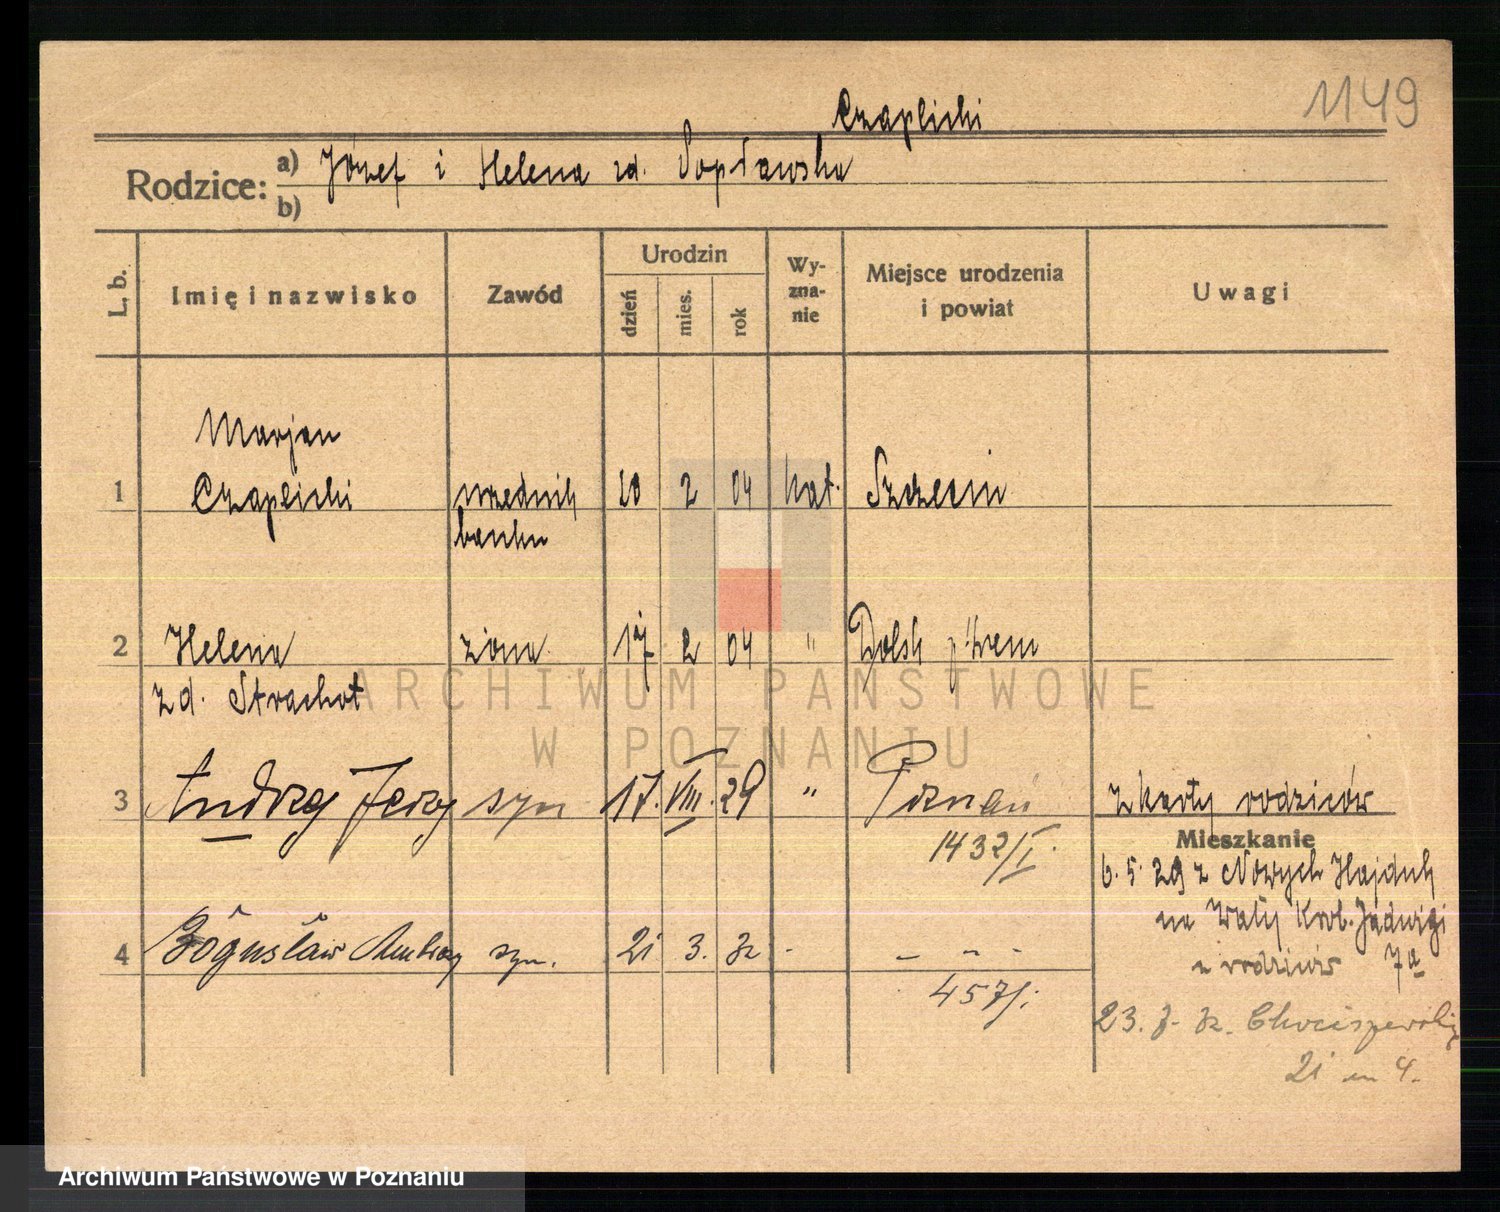 1149
Czaplicki
Rodzice: a) Józef i Helena zd. Popławska
b)
L. b. Imię i nazwisko Zawód Urodzin dzień mies. rok Wyznanie Miejsce urodzenia i powiat Uwagi
Marjan
1 Czaplicki urzędnik 20 2 04 kat. Szczecin
banku
2 Helena żona 17 2 04 " Dolsk p. Śrem
zd. Strachot
ARCHIWUM PAŃSTWOWE
W POZNANIU
3 Andrzej Jerzy syn 17. VIII. 29 " Poznań z karty rodziców
1432/I.
Mieszkanie
6. 5. 29 z Nowych Hajduk
na Wały Król. Jadwigi
4 Bogusław syn. 21 3. 32 - - - - z rodziców 7a
457/
23. 7. 32. Chociszewskiego
21 m 4.
Archiwum Państwowe w Poznaniu